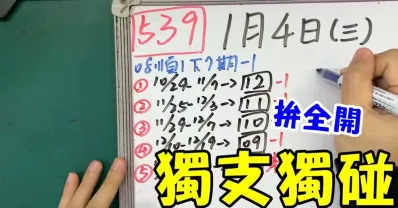 539 1月4日(三)
08順1下7期-1
① 10/24-11/9→12 -1
② 11/25-12/3→11 -1
③ 11/29-12/7→10
④ 12/10-12/19→09 -1
⑤
拚全開
獨支獨碰